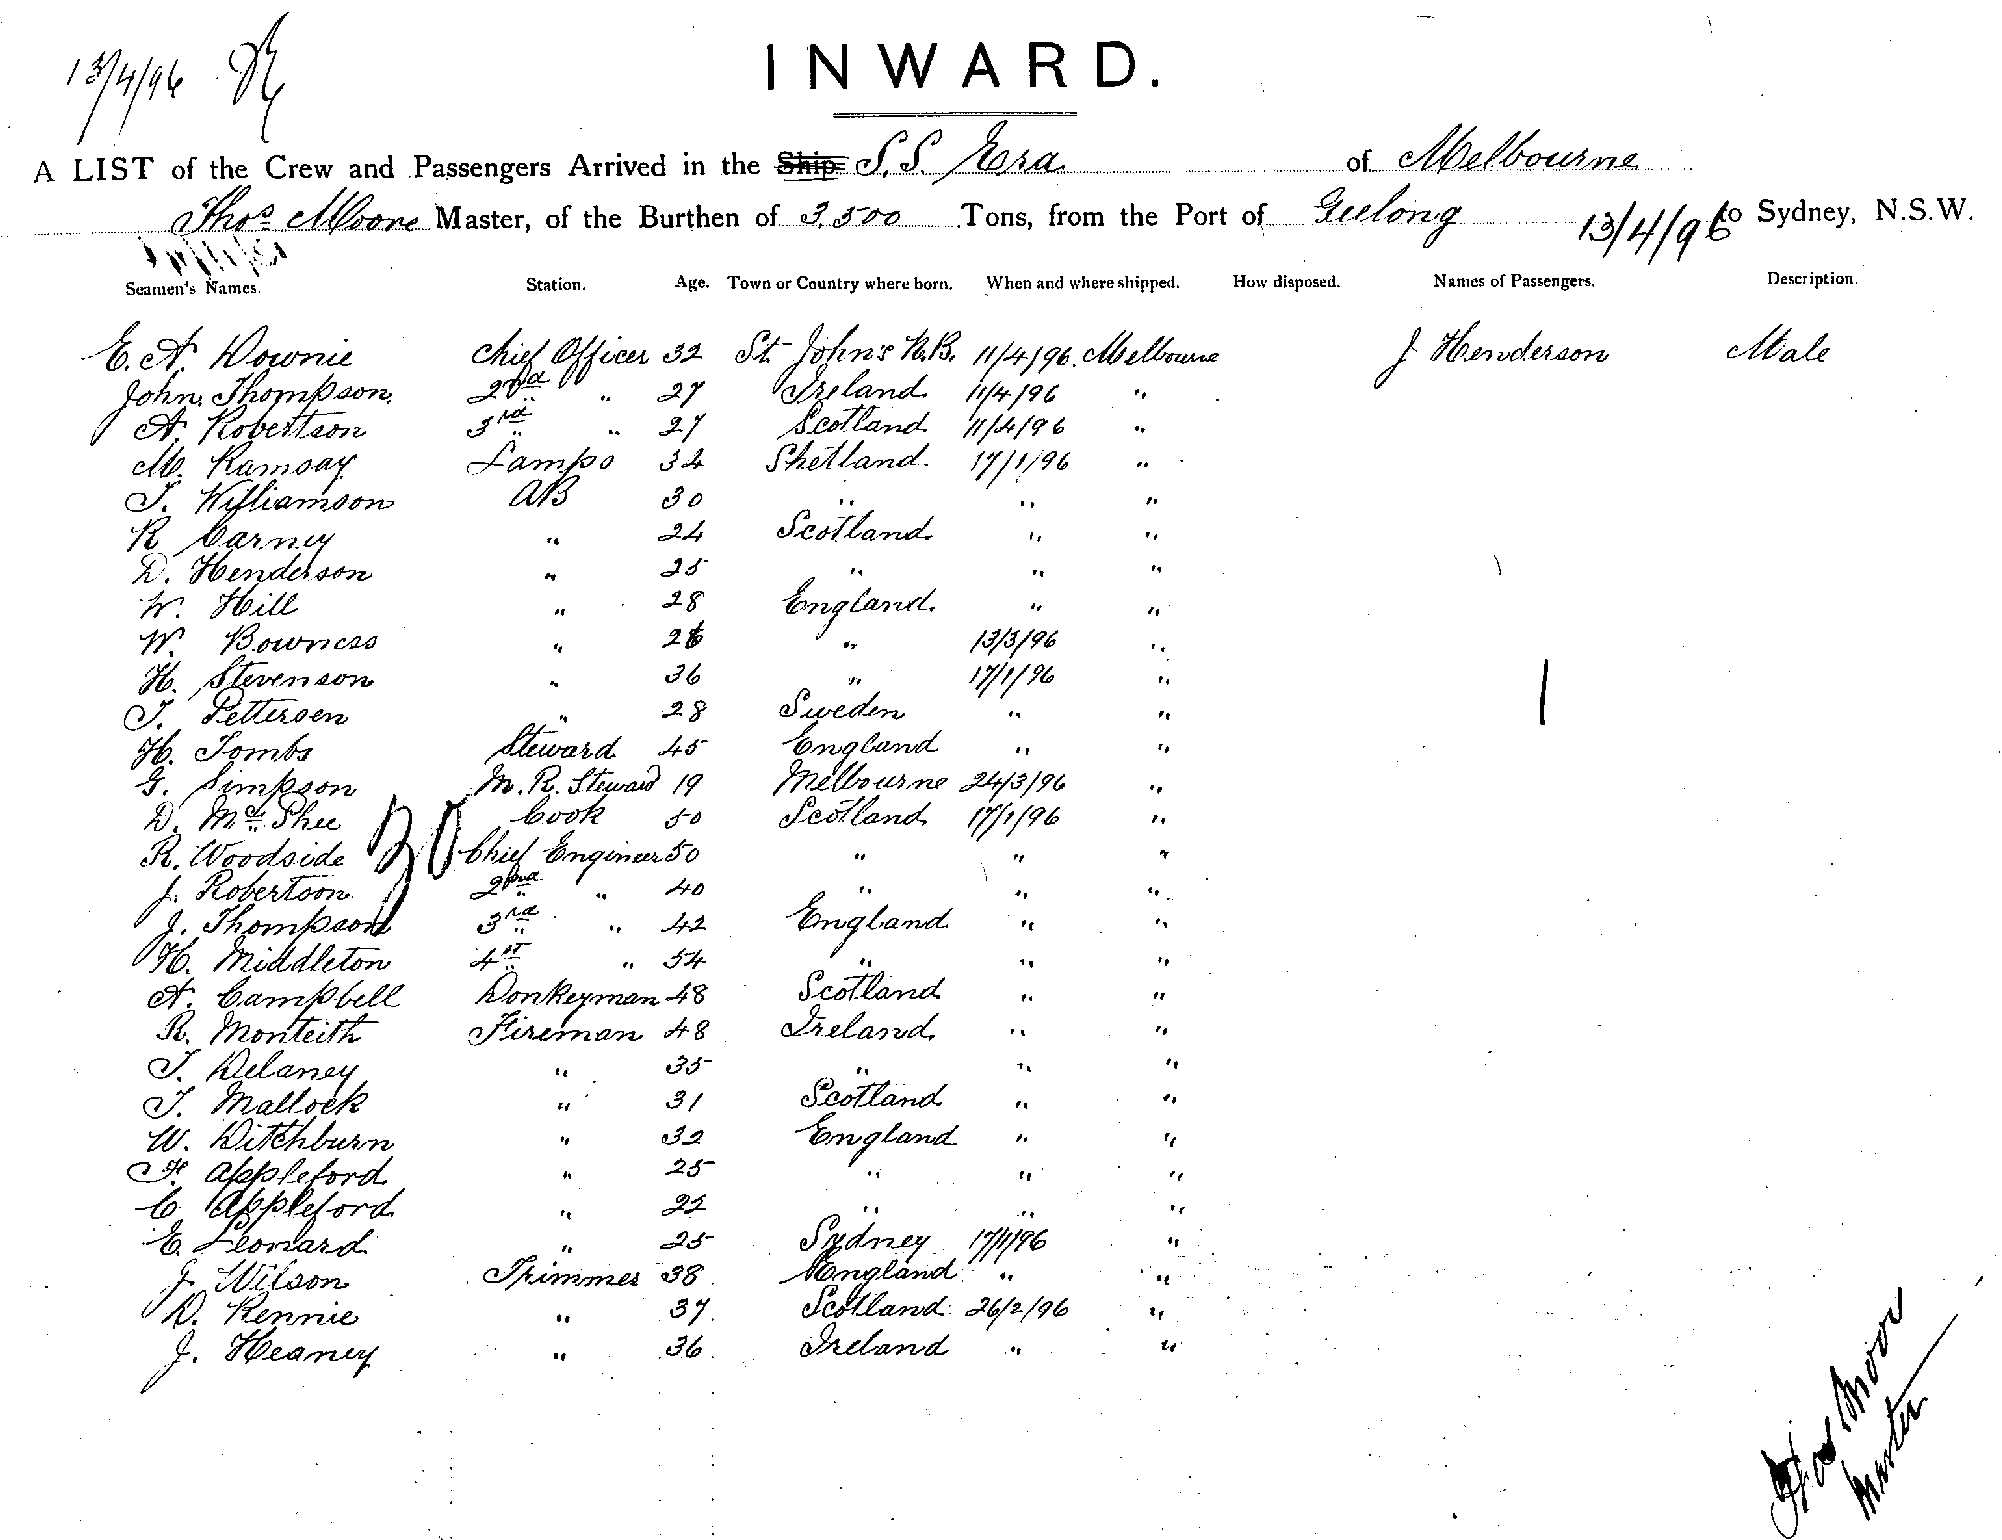 13/4/96
INWARD.
A LIST of the Crew and Passengers Arrived in the Ship S.S. Era of Melbourne
Thos. Moore Master, of the Burthen of 3,500 Tons, from the Port of Geelong 13/4/96 to Sydney, N.S.W.
Seamen's Names. Station. Age. Town or Country where born. When and where shipped. How disposed. Names of Passengers. Description.
E. A. Downie Chief Officer 32 St John's N.B. 11/4/96. Melbourne J Henderson Male
John Thompson. 2nd " " 27 Ireland 11/4/96 "
A. Robertson 3rd " " 27 Scotland 11/4/96 "
M. Ramsay Lamps 34 Shetland. 17/1/96 "
T. Williamson AB 30 " " "
R Carney " 24 Scotland " "
D. Henderson " 25 " " "
W. Hill " 28 England. " "
W. Bowness " 26 " 13/3/96 "
H. Stevenson " 36 " 17/1/96 "
T. Pettersen " 28 Sweden " "
H. Tombs Steward 45 England " "
G. Simpson M. R. Steward 19 Melbourne 24/3/96 "
D. McPhee Cook 50 Scotland 17/1/96 "
R. Woodside Chief Engineer 50 " " "
J. Robertson 2nd " " 40 " " "
J. Thompson 3rd " " 42 England " "
H. Middleton 4st " " 54 " " "
A. Campbell Donkeyman 48 Scotland " "
R. Monteith Fireman 48 Ireland " "
T. Delaney " 35 " " "
T. Mallock " 31 Scotland " "
W. Ditchburn " 32 England " "
F. Appleford " 25 " " "
C Appleford " 22 " " "
E. Leonard " 25 Sydney 17/1/96 "
J Wilson Trimmer 38 England " "
D. Rennie " 37 Scotland 26/2/96 "
J. Heaney " 36 Ireland " "
Thos Moore
Master